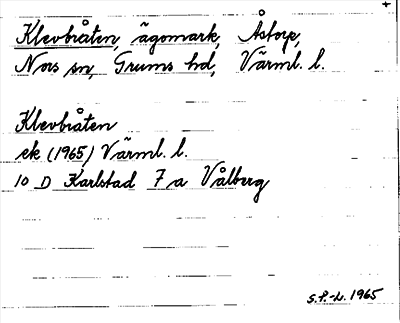 +
Klevbråten, ägomark, Åstorp,
Nors sn, Grums hd, Värml. l.
Klevbråten
ek (1965) Värml. l.
10 D Karlstad 7 a Vålberg
S.P.-L. 1965